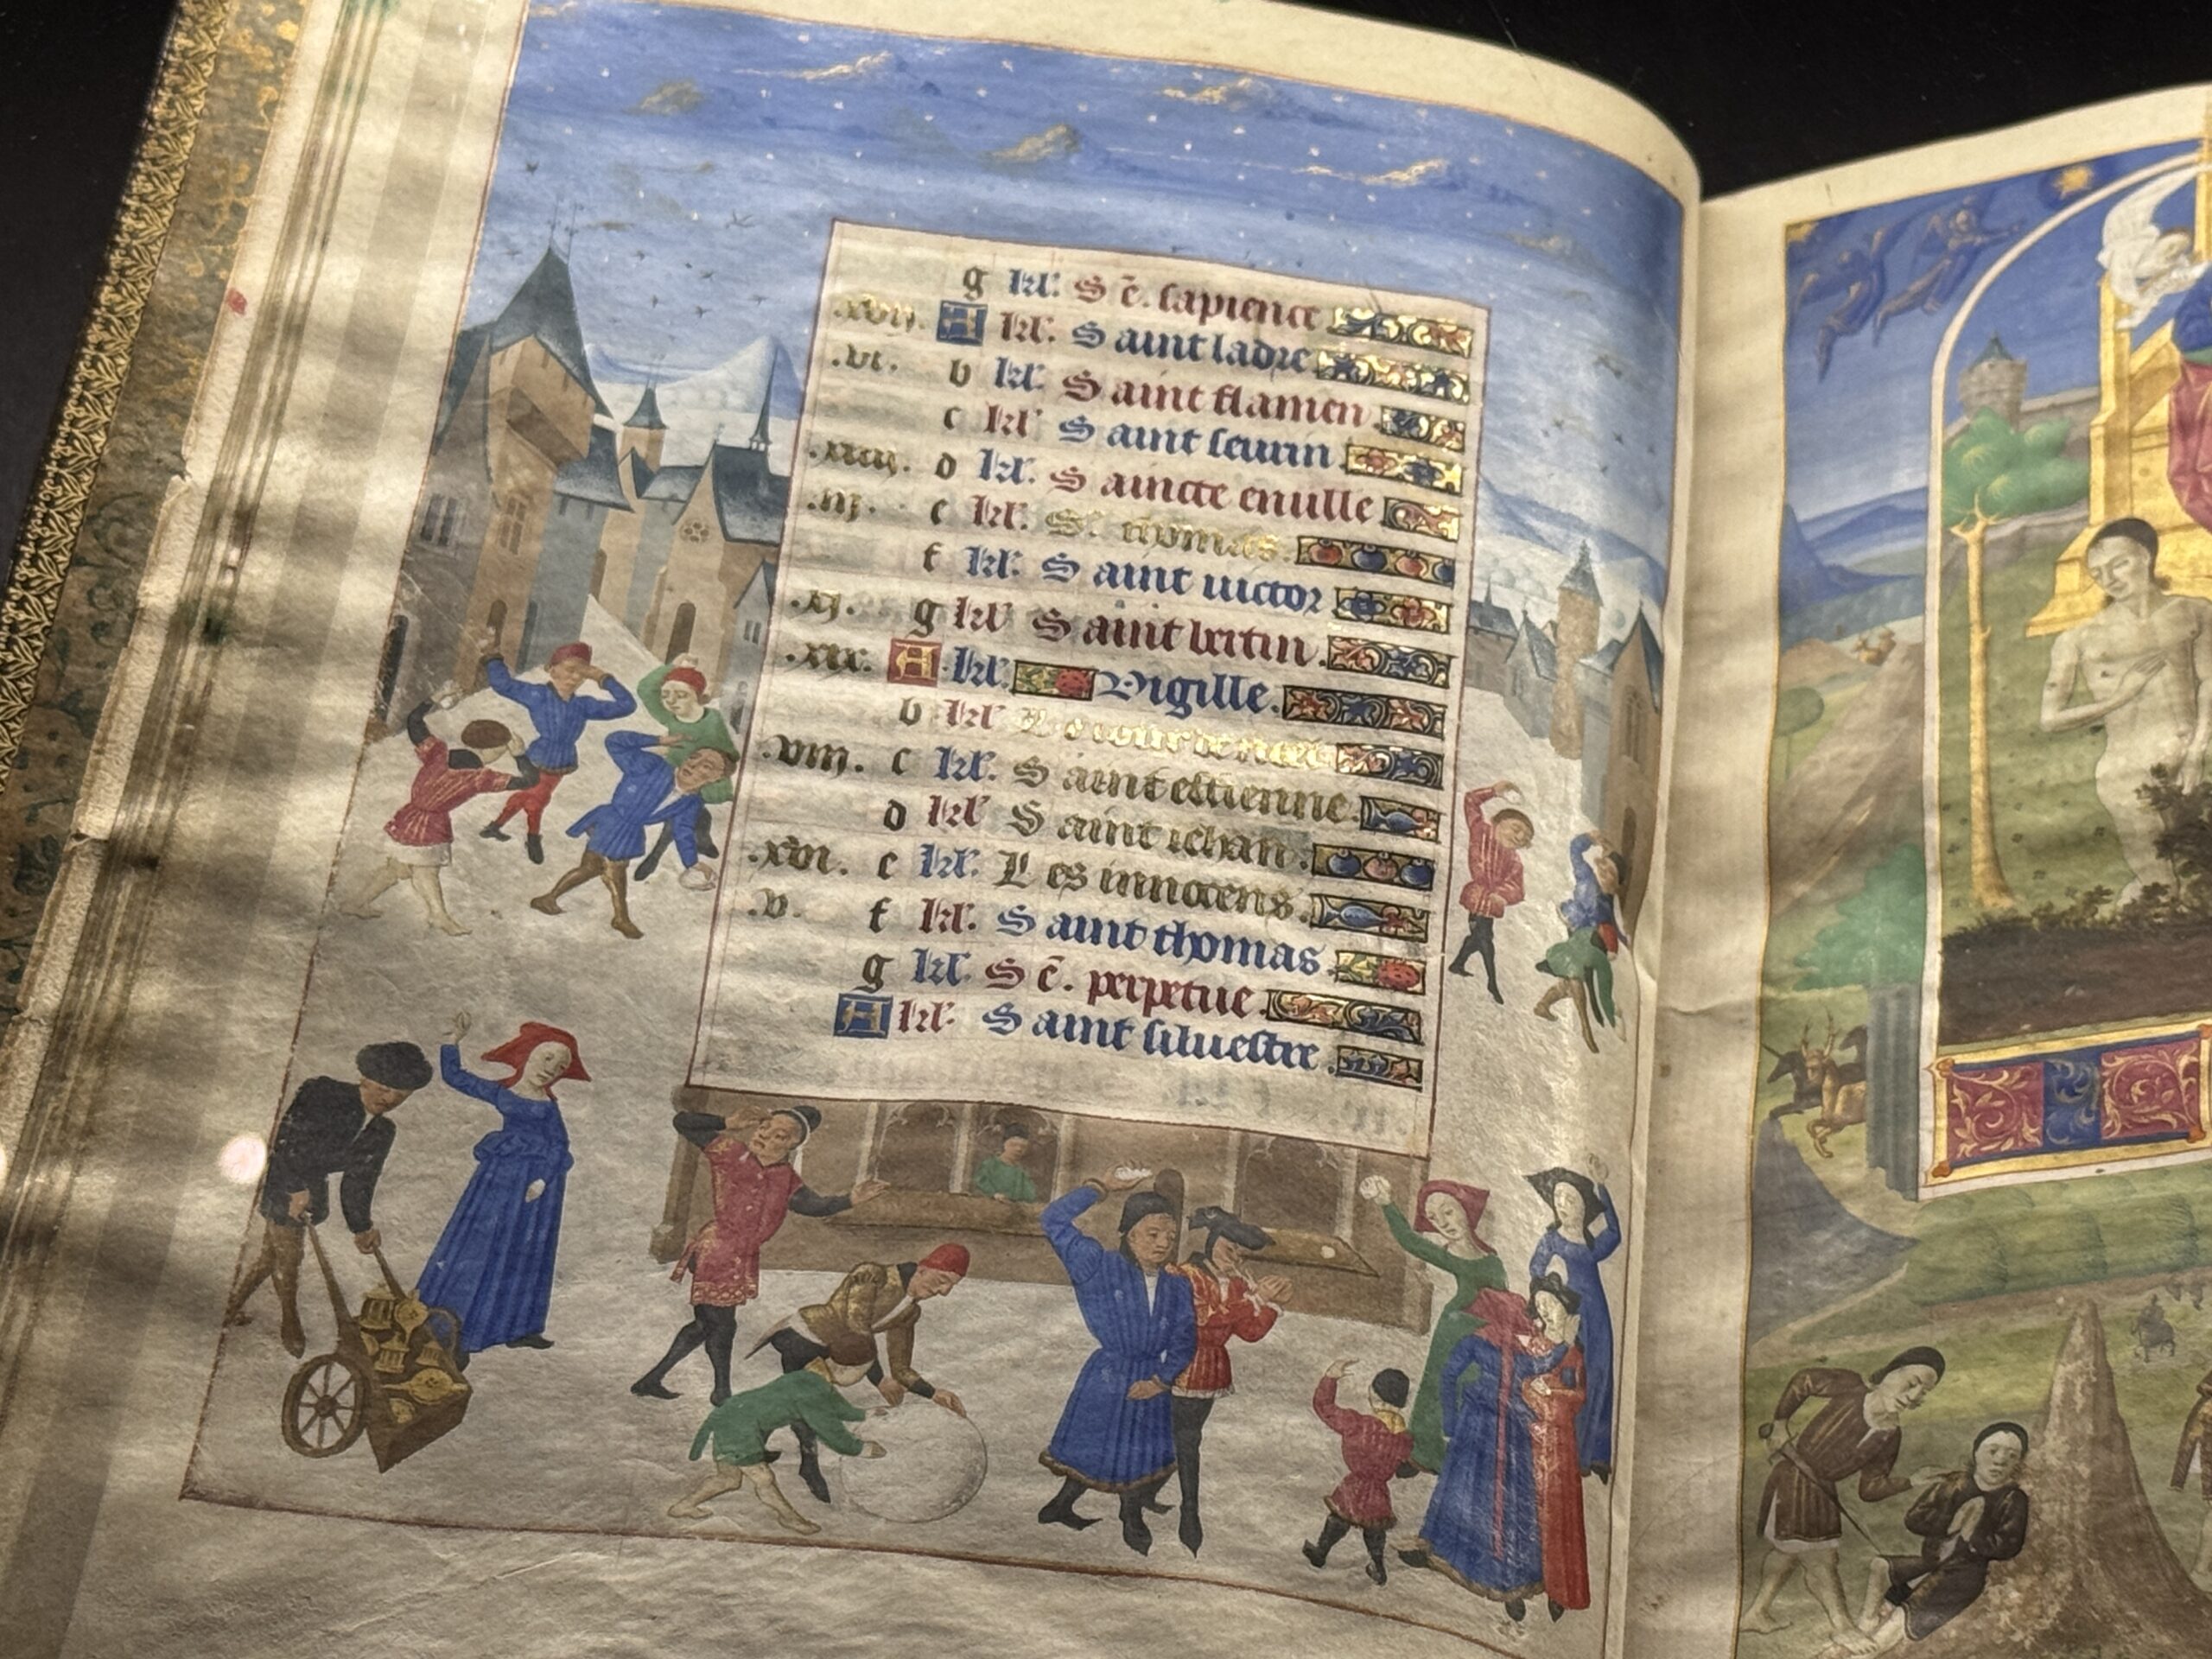 g kl'. S ē. sapience
.xvij. A kl'. Saint ladre
.vi. b kl'. Saint flamen
c kl' Saint seurin
d kl'. Saincte enulle
.iij. e kl'. S't thomas.
f kl'. Saint victor
.xj. g kl' Saint bertin.
.xix. A kl'. Vigille.
b kl' Le iour de noel
.viij. c kl'. Saint estienne.
d kl' Saint iehan.
.xvi. e kl'. Les innocens.
.v. f kl'. Saint thomas.
g kl'. S ē. perpetue
A kl'. Saint siluestre.